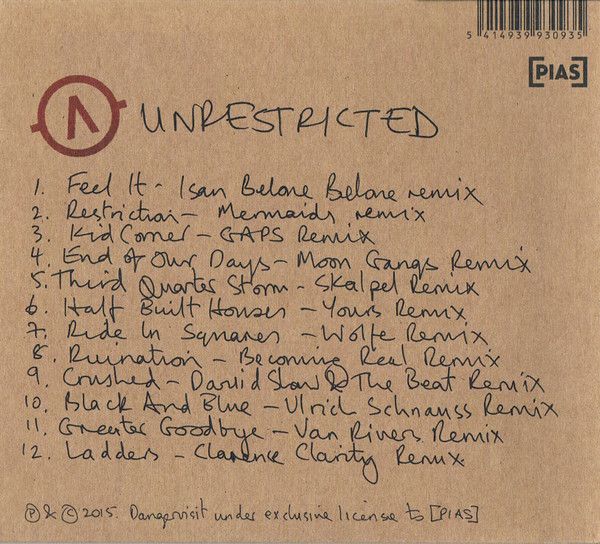 5 414939 930935
[PIAS]
UNRESTRICTED
1. Feel It - Isan Belone Belone remix
2. Restriction - Mermaids remix
3. Kid Corner - GAPS Remix
4. End of Our Days - Moon Gangs Remix
5. Third Quarter Storm - Skalpel Remix
6. Half Built Houses - Yours Remix
7. Ride In Squares - Wolfe Remix
8. Ruination - Becoming Real Remix
9. Crushed - David Shaw & The Beat Remix
10. Black And Blue - Ulrich Schnauss Remix
11. Greater Goodbye - Van Rivers Remix
12. Ladders - Clarence Clarity Remix
℗ & © 2015. Dangervisit under exclusive license to [PIAS]